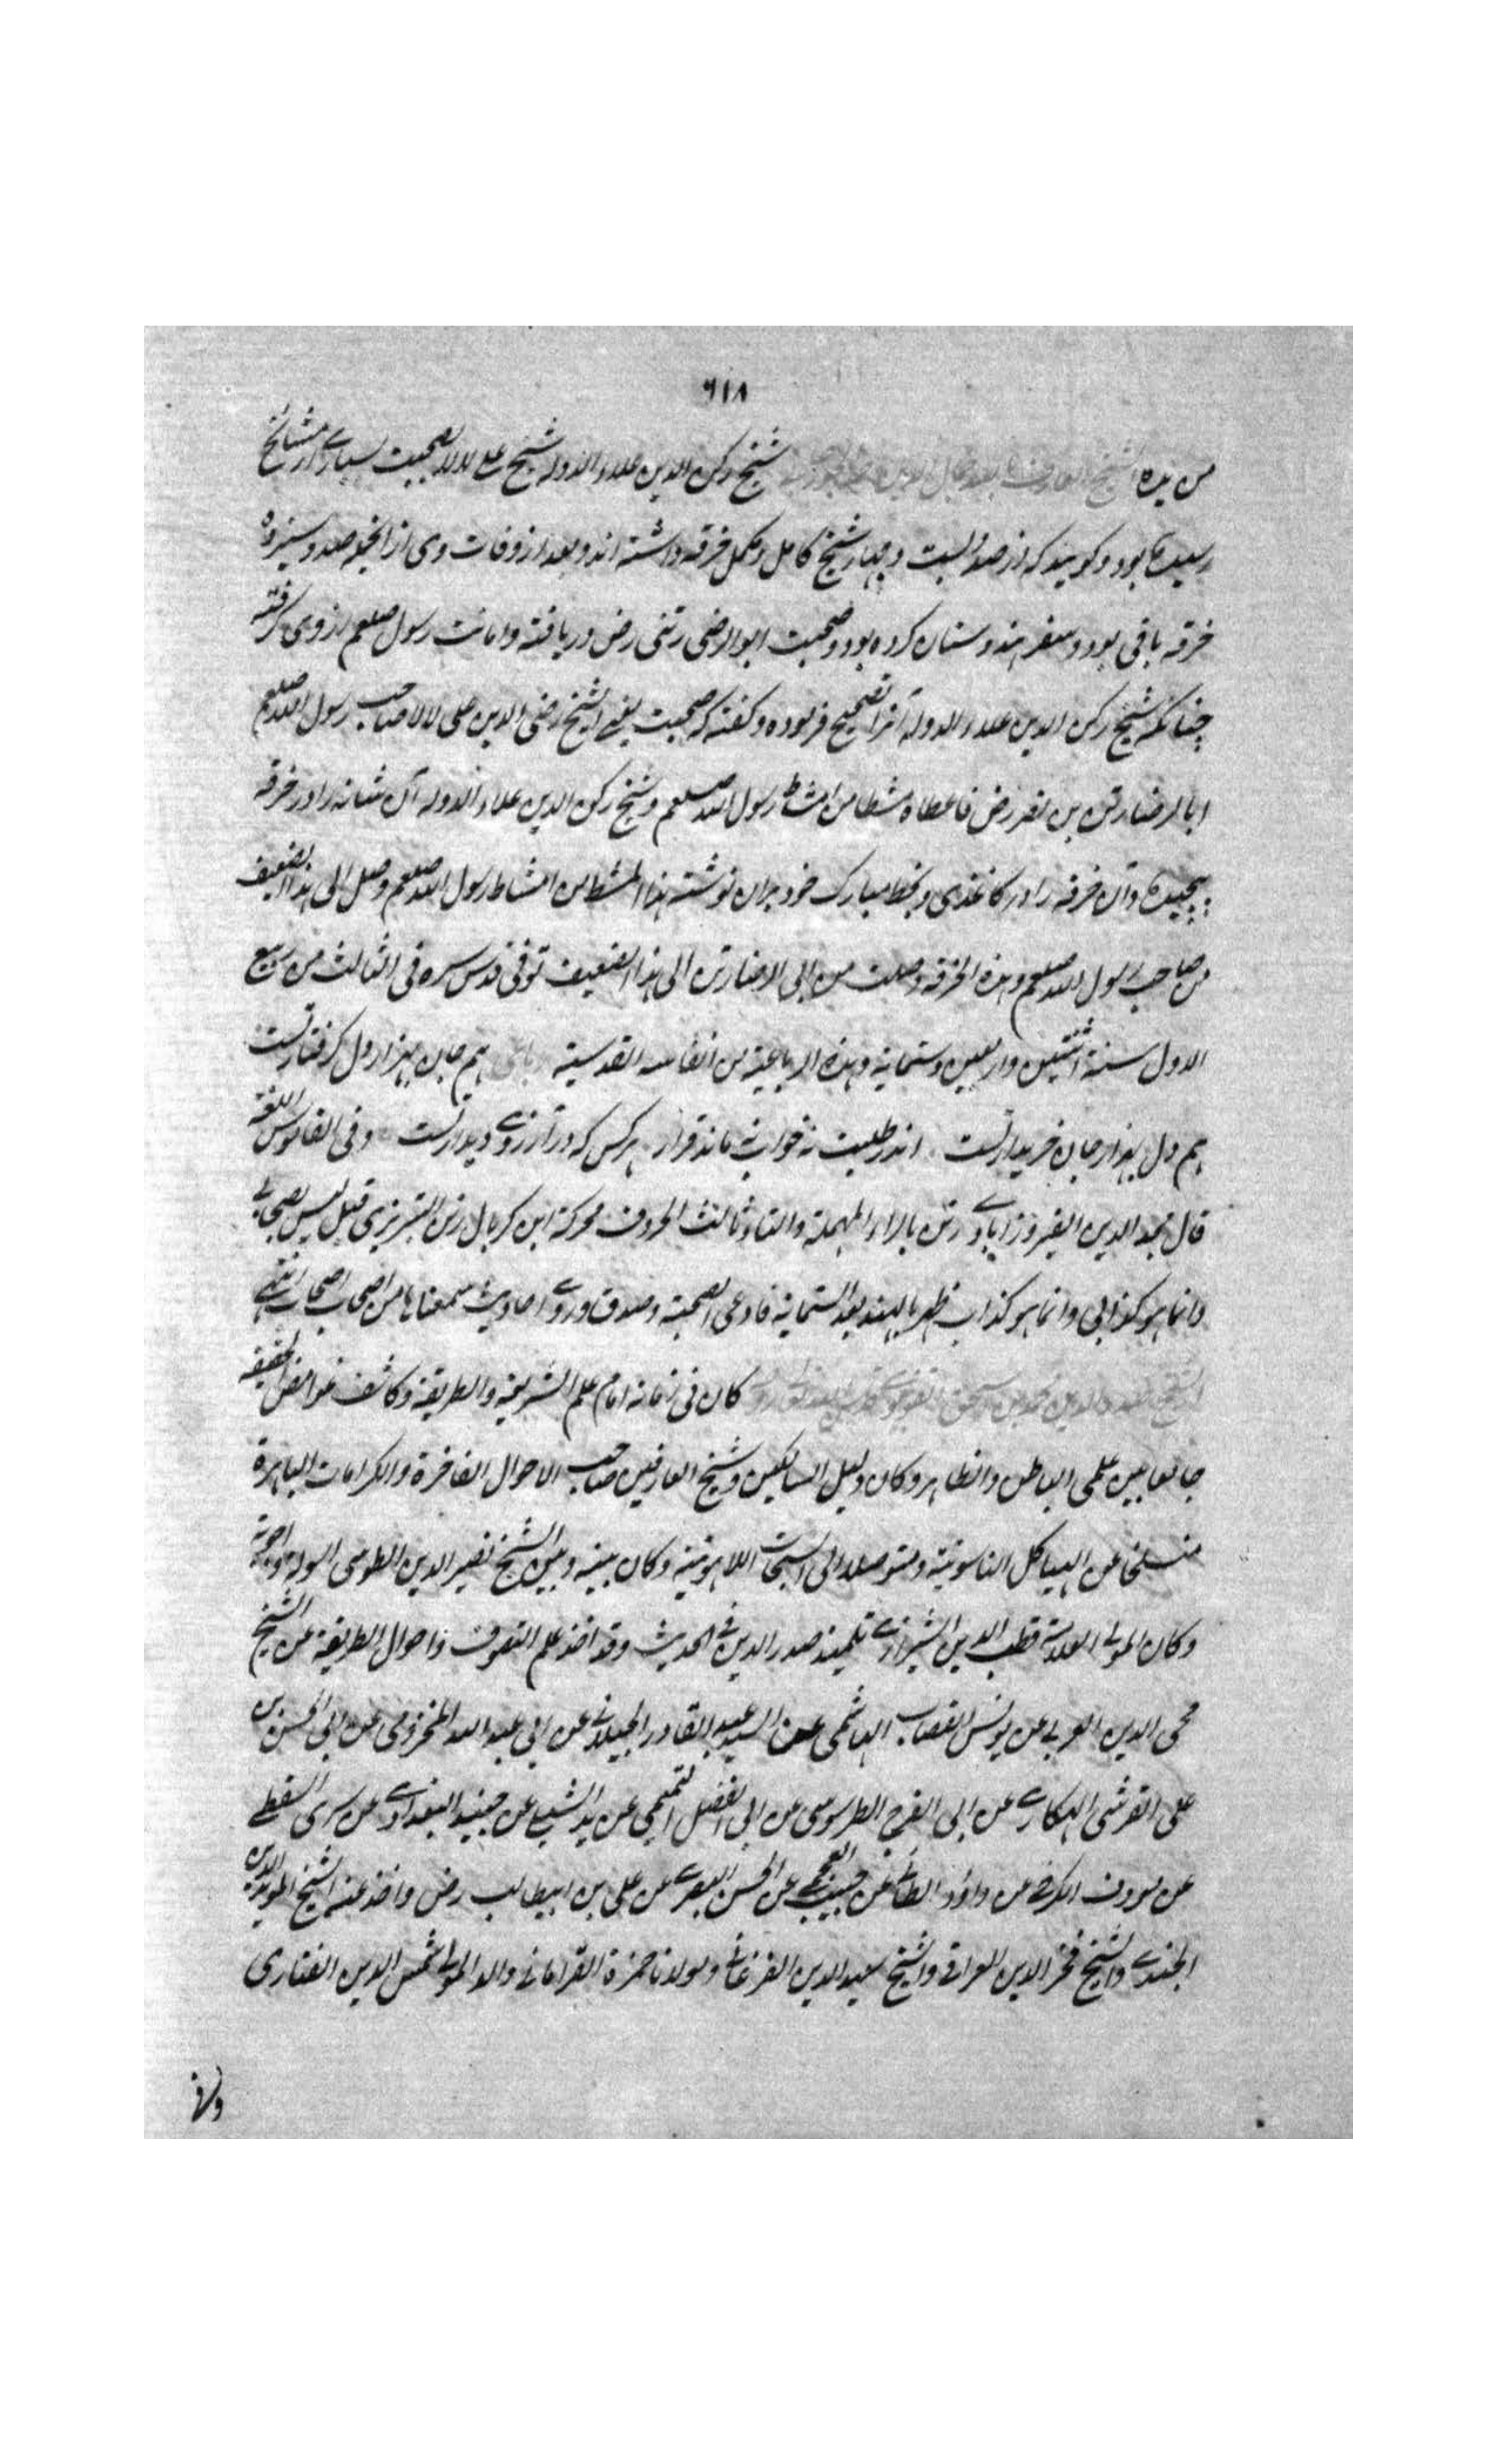 ٦١٨
من يده الشيخ العارف بالله شيخ ركن الدين علاء الدوله شيخ على لالا بصحبت بسيارے از مشائخ
رسيده بود و كويند كه از صد و بست و چهار شيخ كامل و مكمل خرقه داشته اند و بعد از وفات وى از انجمله صد و سيزده
خرقه باقى بود و سفر هندوستان كرده بود و صحبت ابو الرضى رتنى رض دريافته و امانت رسول صلعم از وى گرفته
چنانكه شيخ ركن الدين علاء الدوله آنرا تصحيح فرموده و كفته كه صحبت يعنے الشيخ رضى الدين على لالا صاحب رسول الله صلعم
ابا الرضا رتن بن نصر رض فاعطاه مشطا من امشاط رسول الله صلعم و شيخ ركن الدين علاء الدوله آن شانه را در خرقه
پيچيده و آن خرقه را در كاغذى و بخط مبارك خود بران نوشته هذا المشط من امشاط رسول الله صلعم وصل الى هذا الضعيف
من صاحب رسول الله صلعم و هذه الخرقه وصلت من ابى الرضا رتن الى هذا الضعيف توفى قدس سره فى الثالث من ربيع
الاول سنة اثنتين واربعين وستمايه وهذه الرباعية من انفاسه القدسية رباعى هم جان بهزار دل كرفتار تست
هم دل بهزار جان خريدار تست اندر طلبت نه خواب نه ماند قرار هر كس كه در آرزوے ديدار تست و فى القاموس اللغة
قال مجد الدين الفيروزابادے رتن بالراء المهملة والتاء ثالث الحروف محركة ابن كربال رتن التبريزى قيل ليس بصحابے
وانما هو كذاب ظهر بالهند بعد الستماية فادعى الصحبة وصدق وروے احاديث سمعناها من اصحاب اصحابه انتهے
الشيخ صدر الدين محمد بن اسحق القونوے كان فى زمانه امام علم الشريعة والطريقة وكاشف غوامض الحقيقه
جامعا بين علمى الباطن والظاهر وكان دليل السالكين وشيخ العارفين صاحب الاحوال الفاخرة والكرامات الباهرة
منسلخا عن الهياكل الناسوتية ومتوصلا الى السبحات اللاهوتية وكان بينه وبين الشيخ نصير الدين الطوسى اسولة واجوبة
وكان المولے العلامة قطب الدين الشيرازے تلميذ صدر الدين فے الحديث وقد اخذ علم التصوف واحوال الطريقة من الشيخ
محى الدين العربے عن يونس القصاب الهاشمى عن السيد عبد القادر الجيلانے عن ابى عبد الله المخزومى عن ابى الحسن بن
على القرشى الهكارے عن ابى الفرح الطرسوسى عن ابى الفضل التميمى عن يد الشبلے عن جنيد البغدادے عن سرى السقطے
عن معروف الكرخے عن داؤد الطائے عن حبيب العجمے عن الحسن البصرے عن على بن ابيطالب رض واخذ عنه الشيخ المويد الدين
الجندے والشيخ فخر الدين العراقے والشيخ سعيد الدين الفرغانے ومولانا حمزة القرامانے والد المولے شمس الدين الفنارى